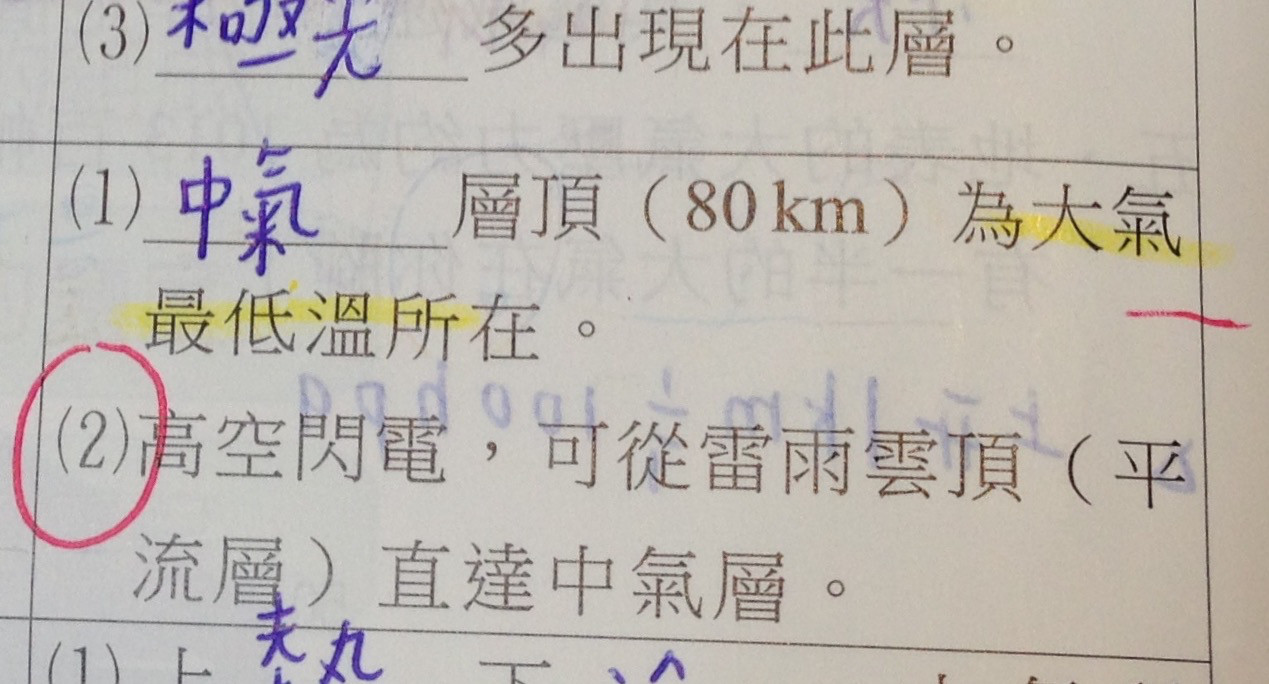 (3) 極光 多出現在此層。
(1) 中氣 層頂（80 km）為大氣
最低溫所在。
(2) 高空閃電，可從雷雨雲頂（平
流層）直達中氣層。
(1) 上熱下冷